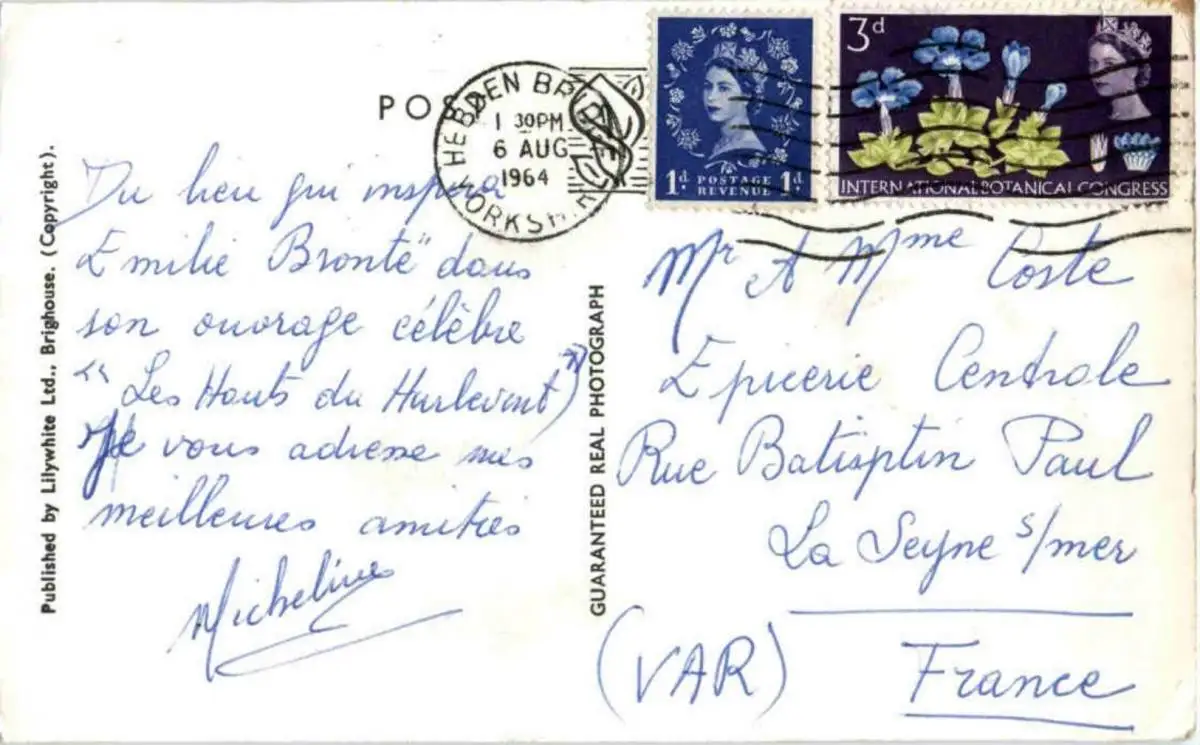 POS
HEBDEN BRIDGE
1 30PM
6 AUG
1964
YORKSHIRE
1d POSTAGE REVENUE 1d
3d
INTERNATIONAL BOTANICAL CONGRESS
Published by Lilywhite Ltd., Brighouse. (Copyright).
Du lieu qui inspira
Emilie Brontë dans
son ouvrage célèbre
"Les Hauts du Hurlevent")
Je vous adresse mes
meilleures amitiés
Micheline
GUARANTEED REAL PHOTOGRAPH
Mr et Mme Coste
Epicerie Centrale
Rue Batisptin Paul
La Seyne s/mer
(VAR) France